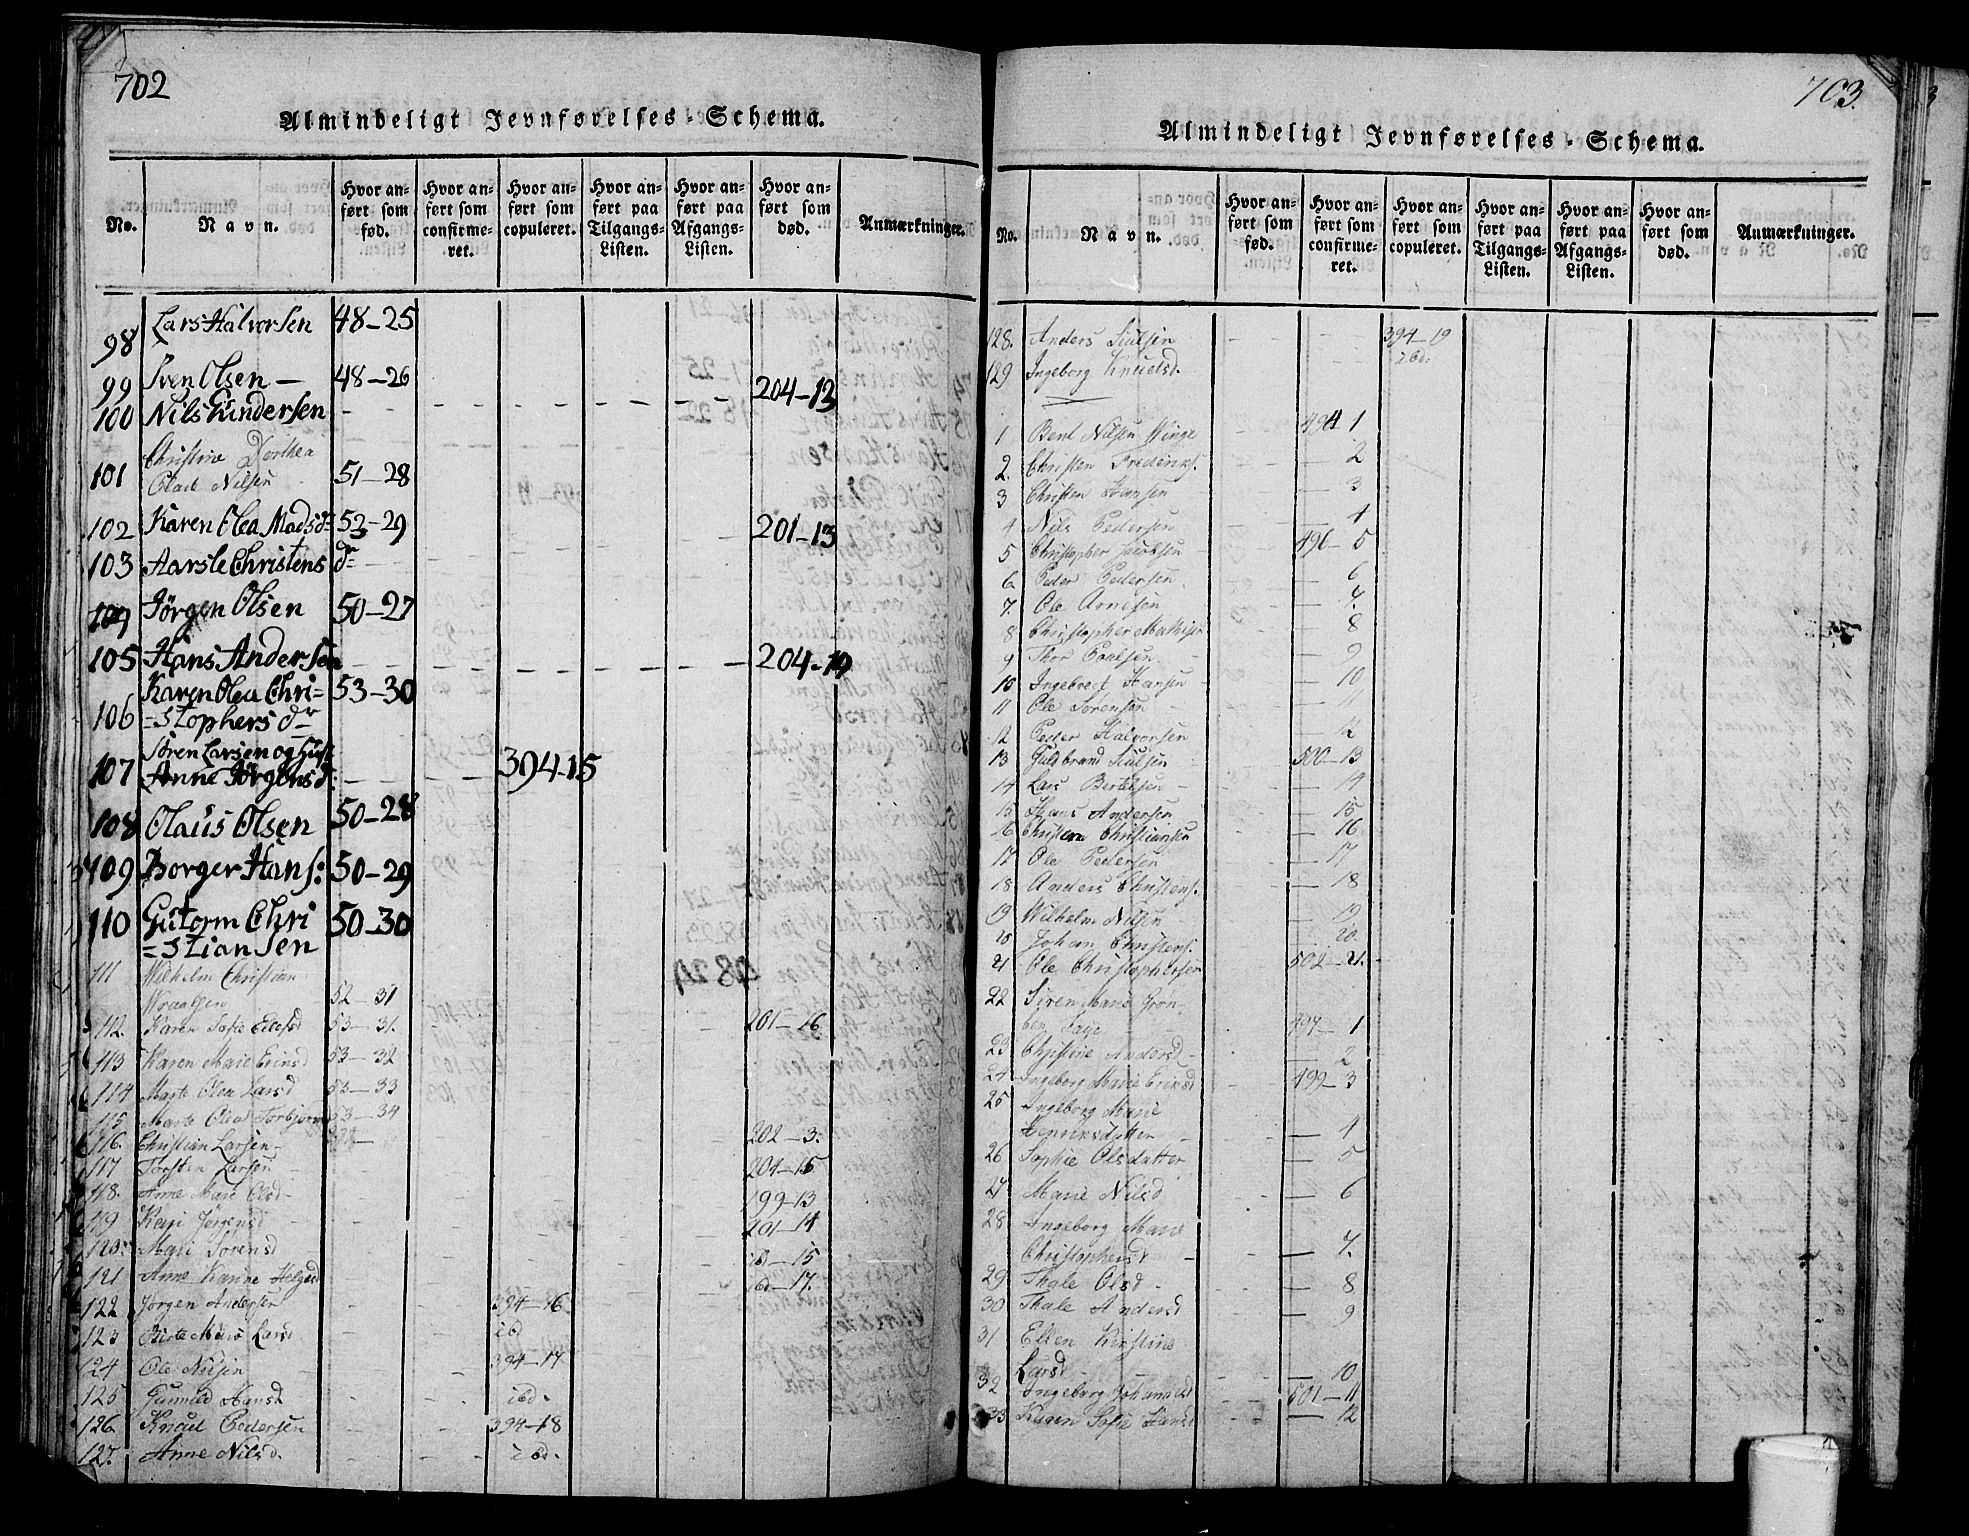 702
Almindeligt Jevnførelses-Schema.
No. Navn. Hvor anført som fød. Hvor anført som confirmeret. Hvor anført som copuleret. Hvor anført paa Tilgangs-Listen. Hvor anført paa Afgangs-Listen. Hvor anført som død. Anmærkninger.
98 Lars Halvorsen 48-25
99 Sven Olsen - 48-26
100 Nils Gundersen 204-12
Christine Dorthea
101 Nilsen 51-28
102 Karen Olea Madsdr 53-29
103 Aarsle Christens dr 201-13
104 Jörgen Olsen 50-27
105 Hans Andersen 204-19
Karen Olea Chri= 53-30
106 =stophersdr
Sören Larsen og
107 Anne Jörgensd: 394-15
108 Olaus Olsen 50-28
109 Borger Hans: 50-29
110 Gutorm Chri 50-30
=stiansen
111 Wilhelm Christian
52-31
112. Karen Sofie 53-31. 201-16
113 Karen Marie Erinsd 53-32
114 Marte Olea Larsd 53-33
115 Marte Olea Torbjörns 53-34
116. Christian Larsen 202-3.
117 Torsten Larsen 204-15
118. Anne Marie Olsd 199-13
119 Kari Jörgensd 201-14
120. Mari Sörensd ibd-15
121 Anne Kanne Helgesd ibd-17.
122 Jörgen Andersen 394-16
123 Birte Marie Larsd ibd
124 Ole Nilsen 394-17
125 Gunnild Hansd ibd.
126 Knud Pedersen 394-18
127. Anne Nilsd. ibd.
703.
Almindeligt Jevnførelses-Schema.
No. Navn. Hvor anført som fød. Hvor anført som confirmeret. Hvor anført som copuleret. Hvor anført paa Tilgangs-Listen. Hvor anført paa Afgangs-Listen. Hvor anført som død. Anmærkninger.
128. Anders Siulsen 394-19
129 Ingeborg Knuelsd. ibd.
1 Bent Nilsen Winge 494 1
2. Christen Frederiks. 2
3 Christen Hansen 3
4 Nils Pedersen 4
5 Christopher Jacobsen 496-5
6 Peder Pedersen 6
7. Ole Arnesen 7.
8 Christopher Mathisen 8
9 Thor Poulsen 9
10 Ingebret Hansen 10
11 Ole Sörensen 11
12 Peder Halvorsen 12
13 Guldbrand Siulsen 500-13
14 Lars Bertelsen 14
15 Hans Andersen 15
16 Christen Christiansen 16
17 Ole Pedersen 17
18 Anders Christens. 18
19 Wilhelm Nilsen 19
20 Johan Christens. 20.
21 Ole Christophersen 502-21.
22 Siren Marie Gron-
497-1
23 Christine Andersd 2
24 Ingeborg Marie Erinsd 499-3
25 Ingeborg Marie
Henrinsdatter 4
26 Sophie Olsdatter 5
27 Marie Nilsd 6
28 Ingeborg Marie
Christophersd 7.
29 Thale Olsd. 8
30 Thale Andersd 9
31 Ellen Kirstine
Larsd 10
32 Ingeborg Johannesd 501-11
33 Karen Sofie Hansd 12